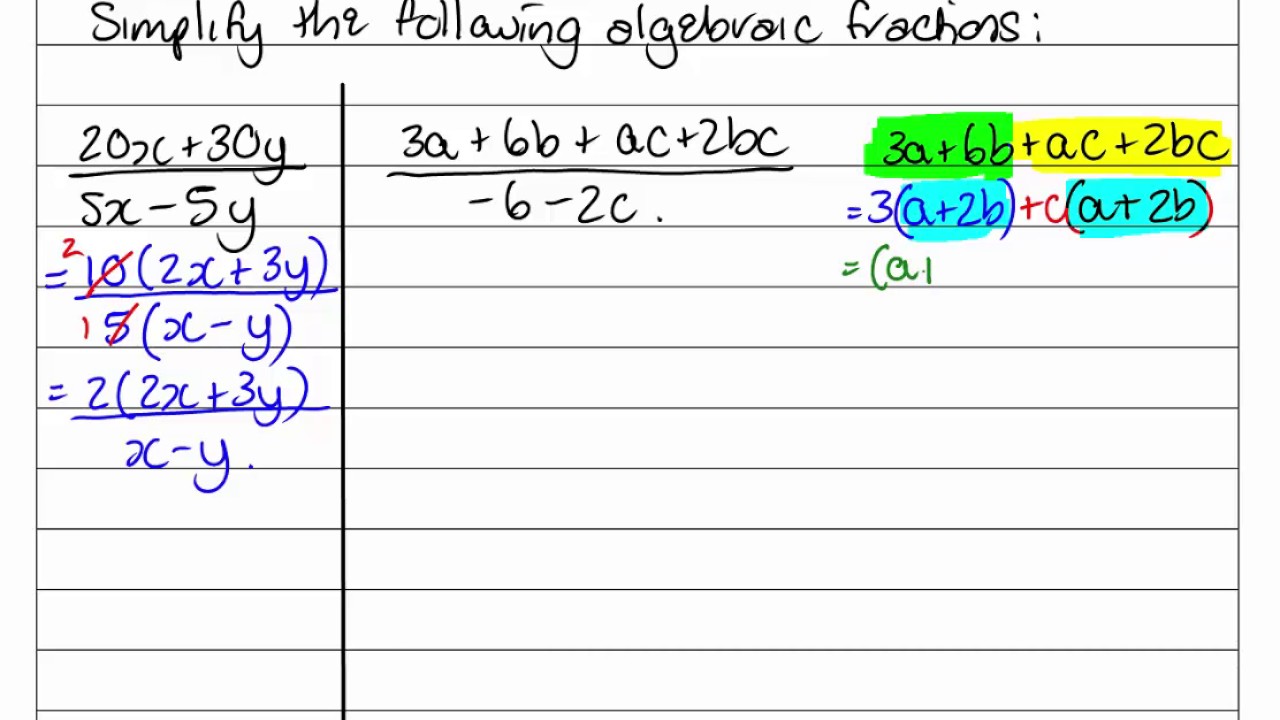 Simplify the following algebraic fractions:
20x+30y
5x-5y
=²10(2x+3y)
¹5(x-y)
=2(2x+3y)
x-y.
3a+6b+ac+2bc
-6-2c.
3a+6b+ac+2bc
=3(a+2b)+c(a+2b)
=(a